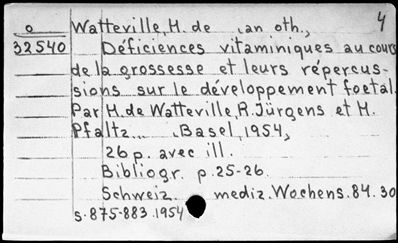 o Watteville, H. de an oth., 4
32540 Déficiences vitaminiques au cours
de la grossesse et leurs répercus-
sions sur le développement foetal.
Par H. de Watteville, R. Jürgens et H.
Pfaltz Basel, 1954,
26 p. avec ill.
Bibliogr. p. 25-26.
Schweiz. mediz. Wochens. 84. 30
s. 875-883. 1954